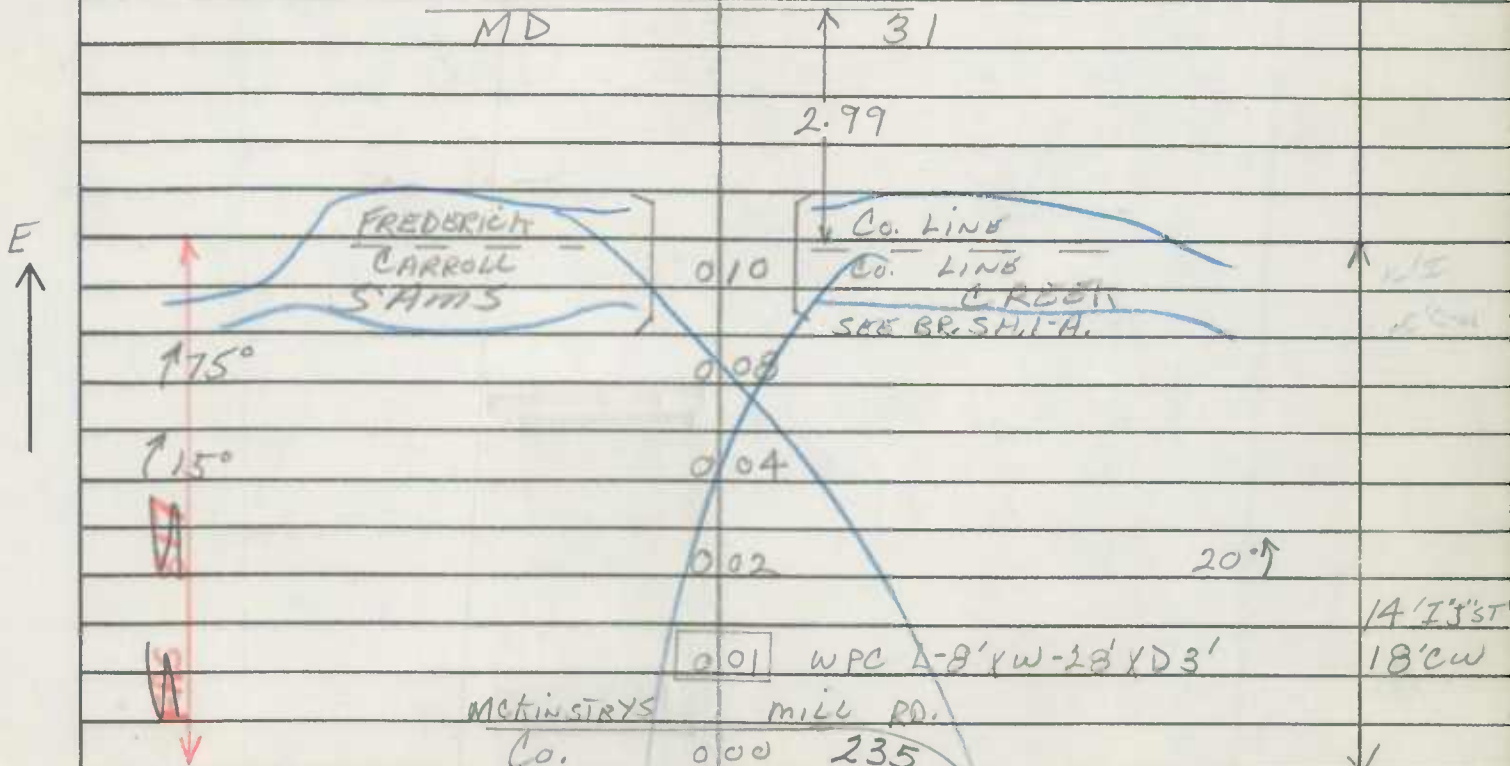 MD 31
2.99
E
FREDERICK Co. LINE
CARROLL 0 10 Co. LINE
SAMS CREEK
SEE BR. SH. 1-A.
75° 0 08
15° 0 04
0 02 20°
14' I "J" ST
0 01 WPC L-8' X W-28' X D 3' 18' CW
MCKINSTRYS MILL RD.
Co. 0 00 235